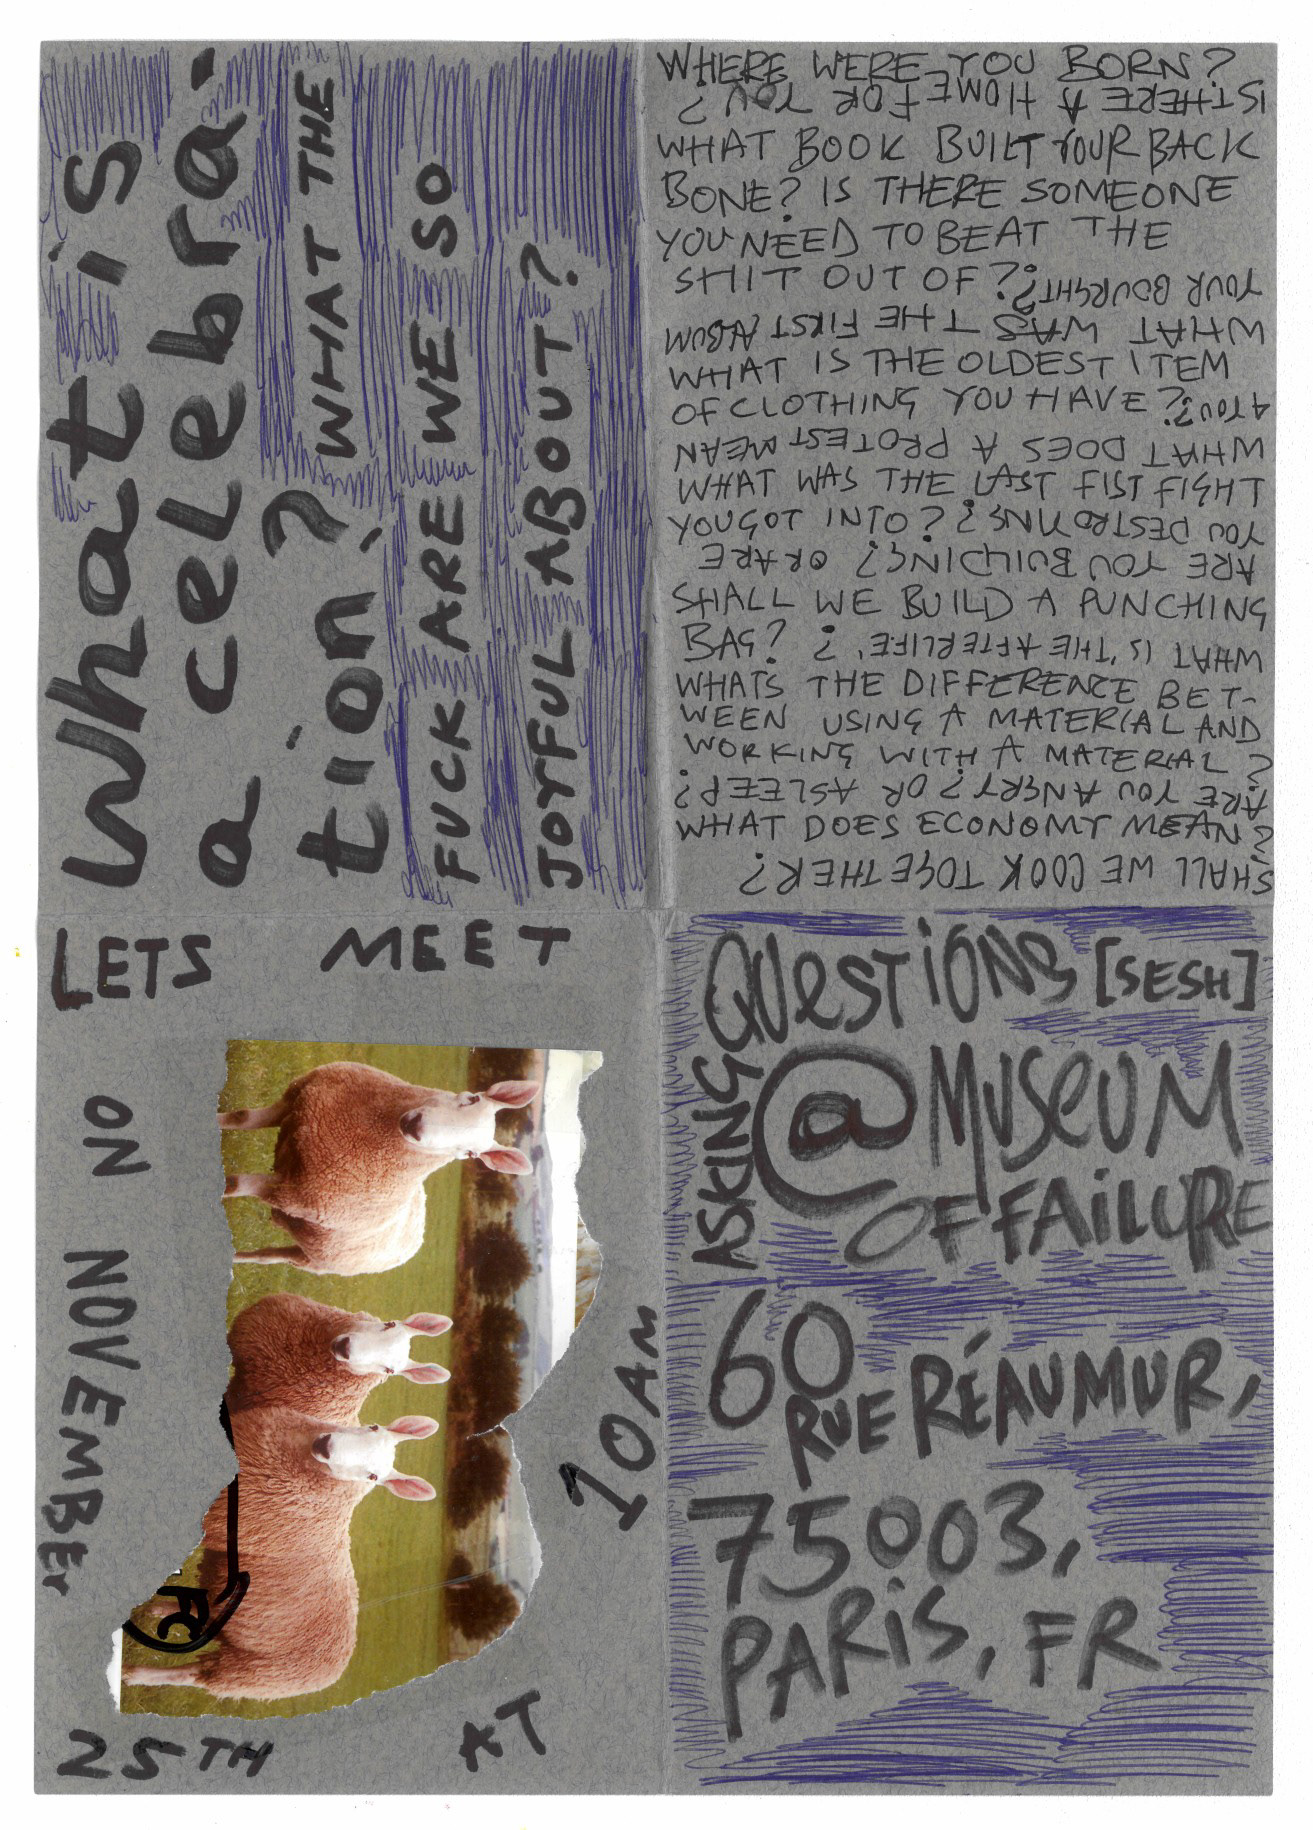 What is
a celebra-
tion?
WHAT THE
FUCK ARE WE SO
JOYFUL ABOUT?
WHERE WERE YOU BORN?
IS THERE A HOME FOR YOU?
WHAT BOOK BUILT YOUR BACK
BONE? IS THERE SOMEONE
YOU NEED TO BEAT THE
SHIT OUT OF?
WHAT WAS THE FIRST ALBUM
YOUR BOURGHT?
WHAT IS THE OLDEST ITEM
OF CLOTHING YOU HAVE?
WHAT DOES A PROTEST MEAN
4 YOU?
WHAT WAS THE LAST FIST FIGHT
YOU GOT INTO?
ARE YOU BUILDING? OR ARE
YOU
SHALL WE BUILD A PUNCHING
BAG?
WHAT IS, 'THE AFTERLIFE,' ?
WHATS THE DIFFERENCE BET-
WEEN USING A MATERIAL AND
WORKING WITH A MATERIAL?
ARE YOU ANGRY? OR ASLEEP?
WHAT DOES ECONOMY MEAN?
SHALL WE COOK TOGETHER?
LETS MEET
ON NOVEMBER
25TH
AT
10AM
ASKING
QUESTIONS [SESH]
@ MUSEUM
OF FAILURE
60
RUE RÉAUMUR,
75003,
PARIS, FR